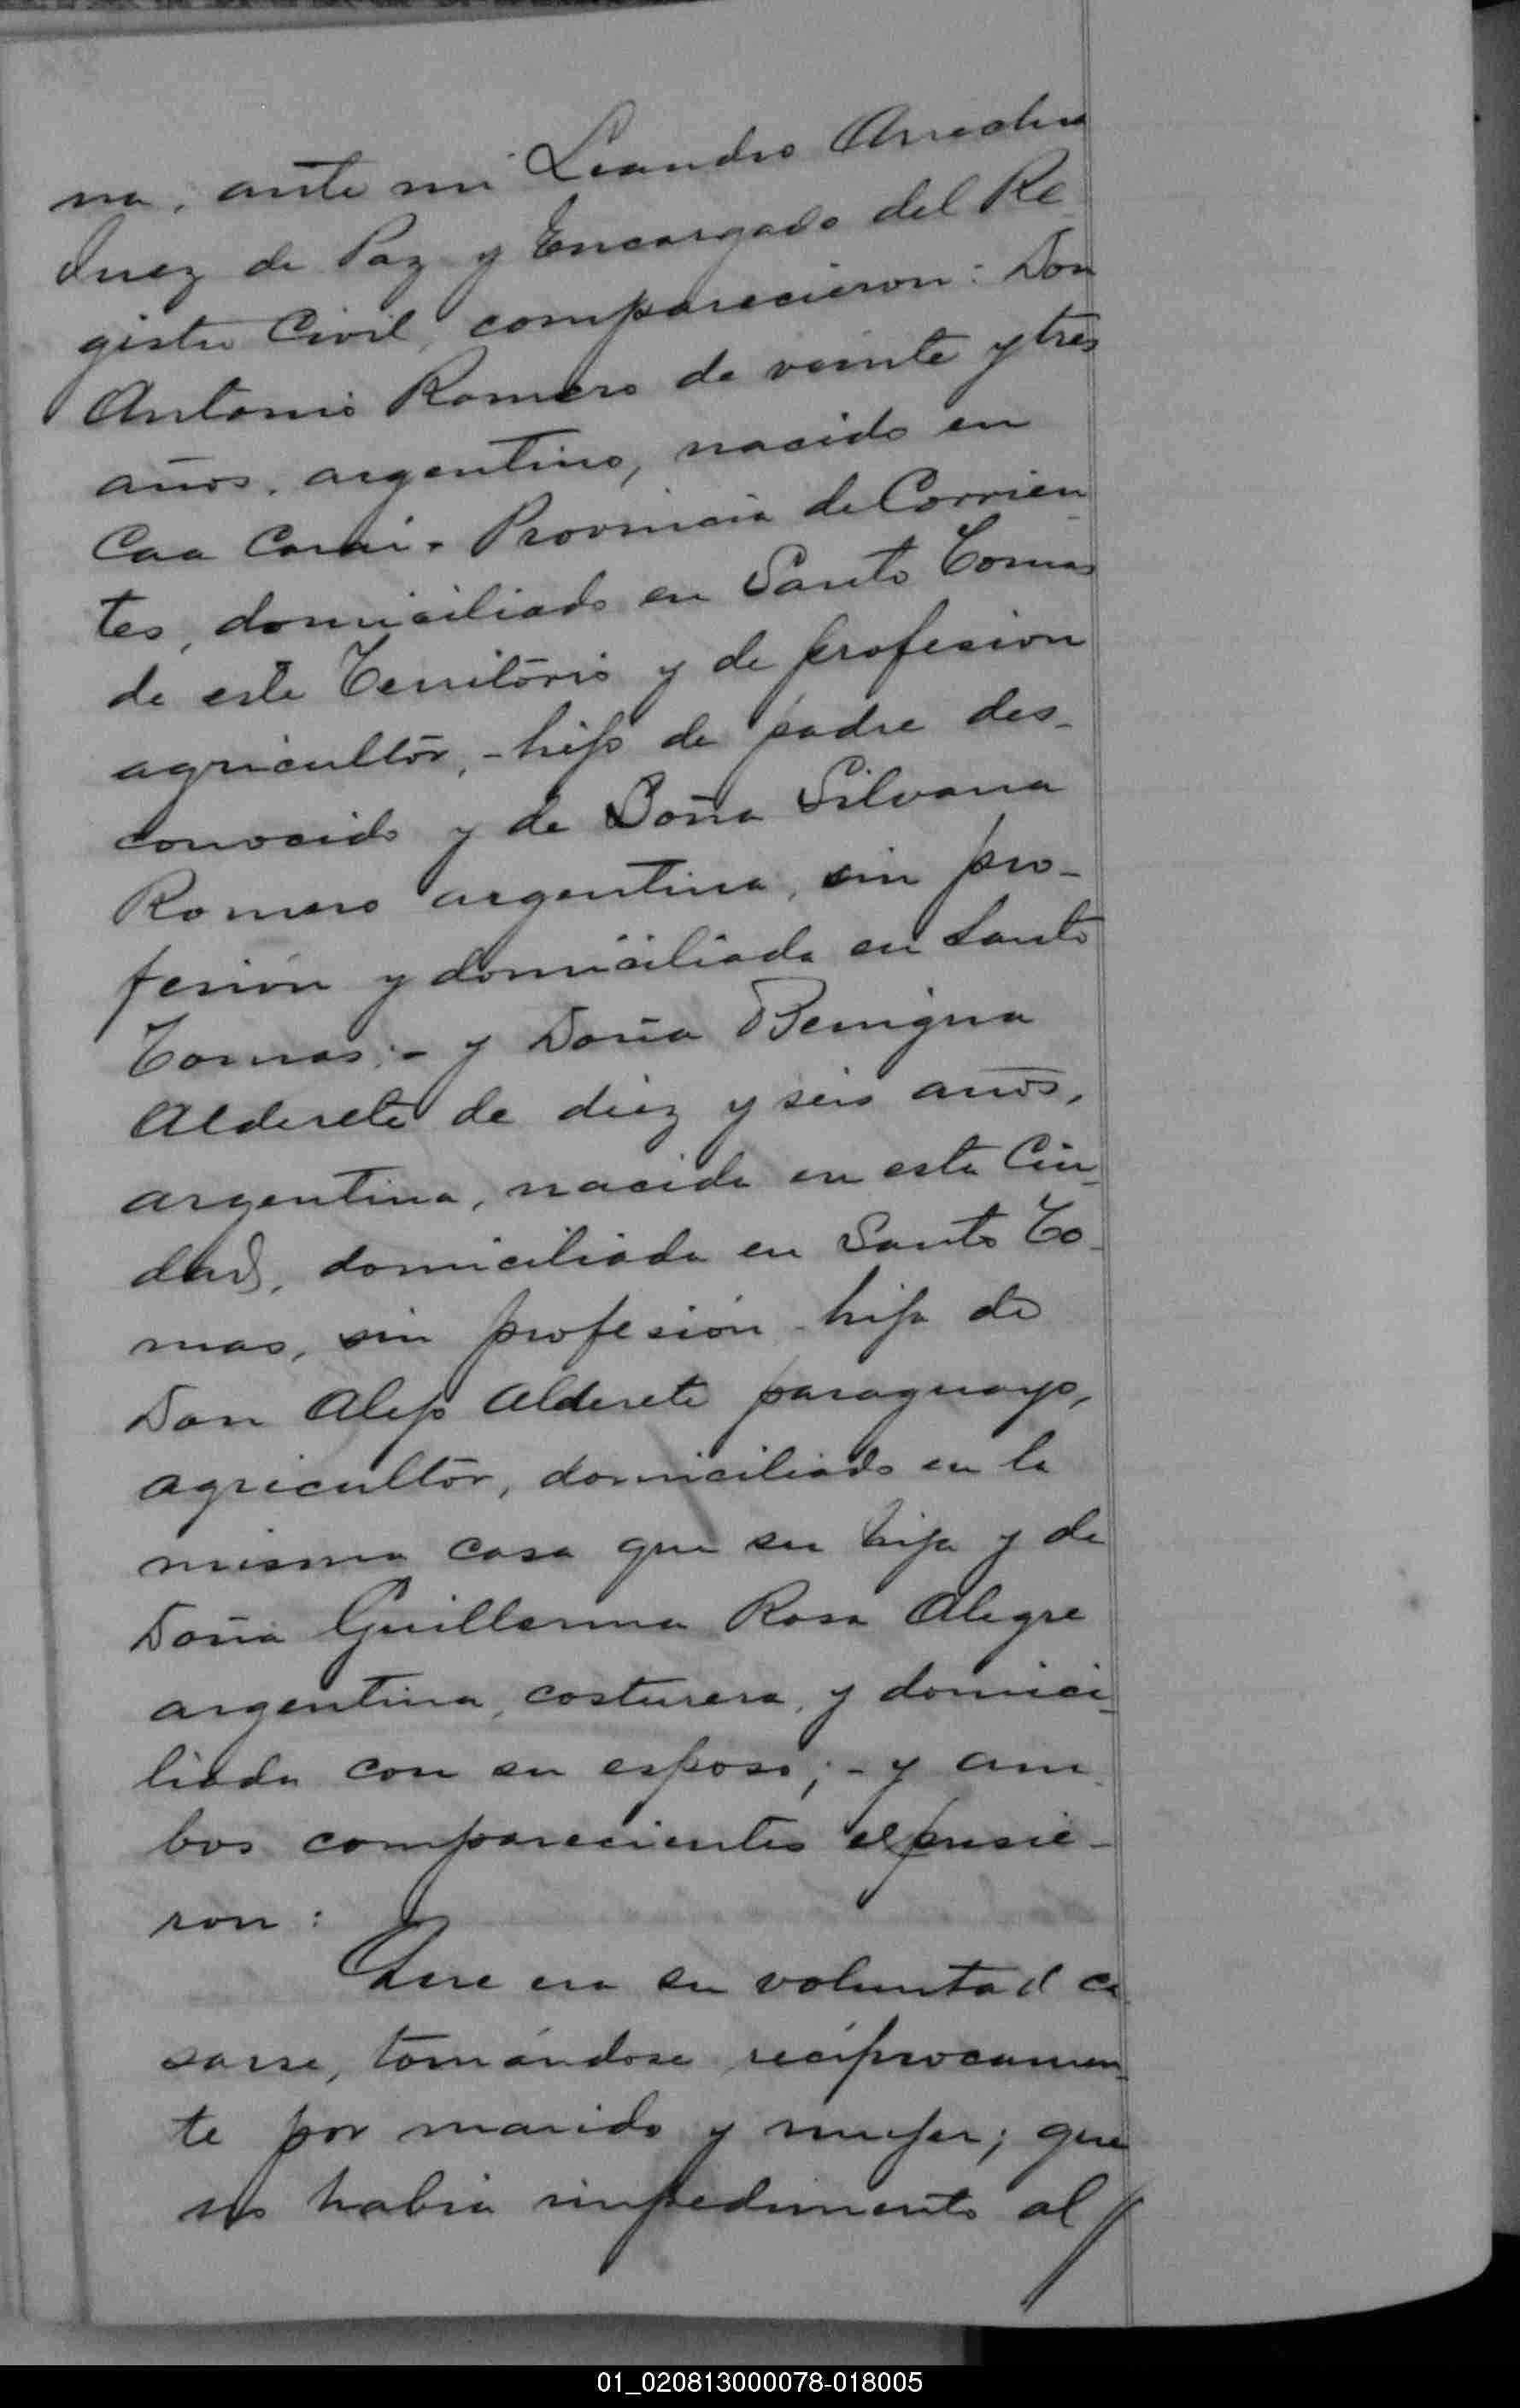 na, ante mi Leandro Arrechea
Juez de Paz y Encargado del Re
gistro Civil, comparecieron: Don
Antonio Romero de veinte y tres
años, argentino, nacido en
Caa Carai - Provincia de Corrien
tes, domiciliado en Santo Tomas
de este Territorio y de profesion
agricultor, - hijo de padre des-
conocido y de Doña Silvana
Romero argentina, sin pro-
fesión y domiciliada en Santo
Tomas; - y Doña Benigna
Alderete de diez y seis años,
argentina, nacida en esta Ciu-
dad, domiciliada en Santo To-
mas, sin profesión - hija de
Don Alejo Alderete paraguayo,
agricultor, domiciliado en la
misma casa que su hija y de
Doña Guillerma Rosa Alegre
argentina, costurera, y domici-
liada con su esposo; - y am-
bos comparecientes expusie-
ron:
Que era su voluntad ca
sarse, tomándose recíprocamen-
te por marido y mujer; que
no habia impedimento al //
01_020813000078-018005